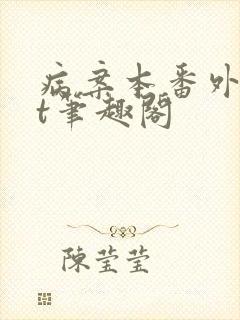 病案本番外
t笔趣阁
陈莹莹